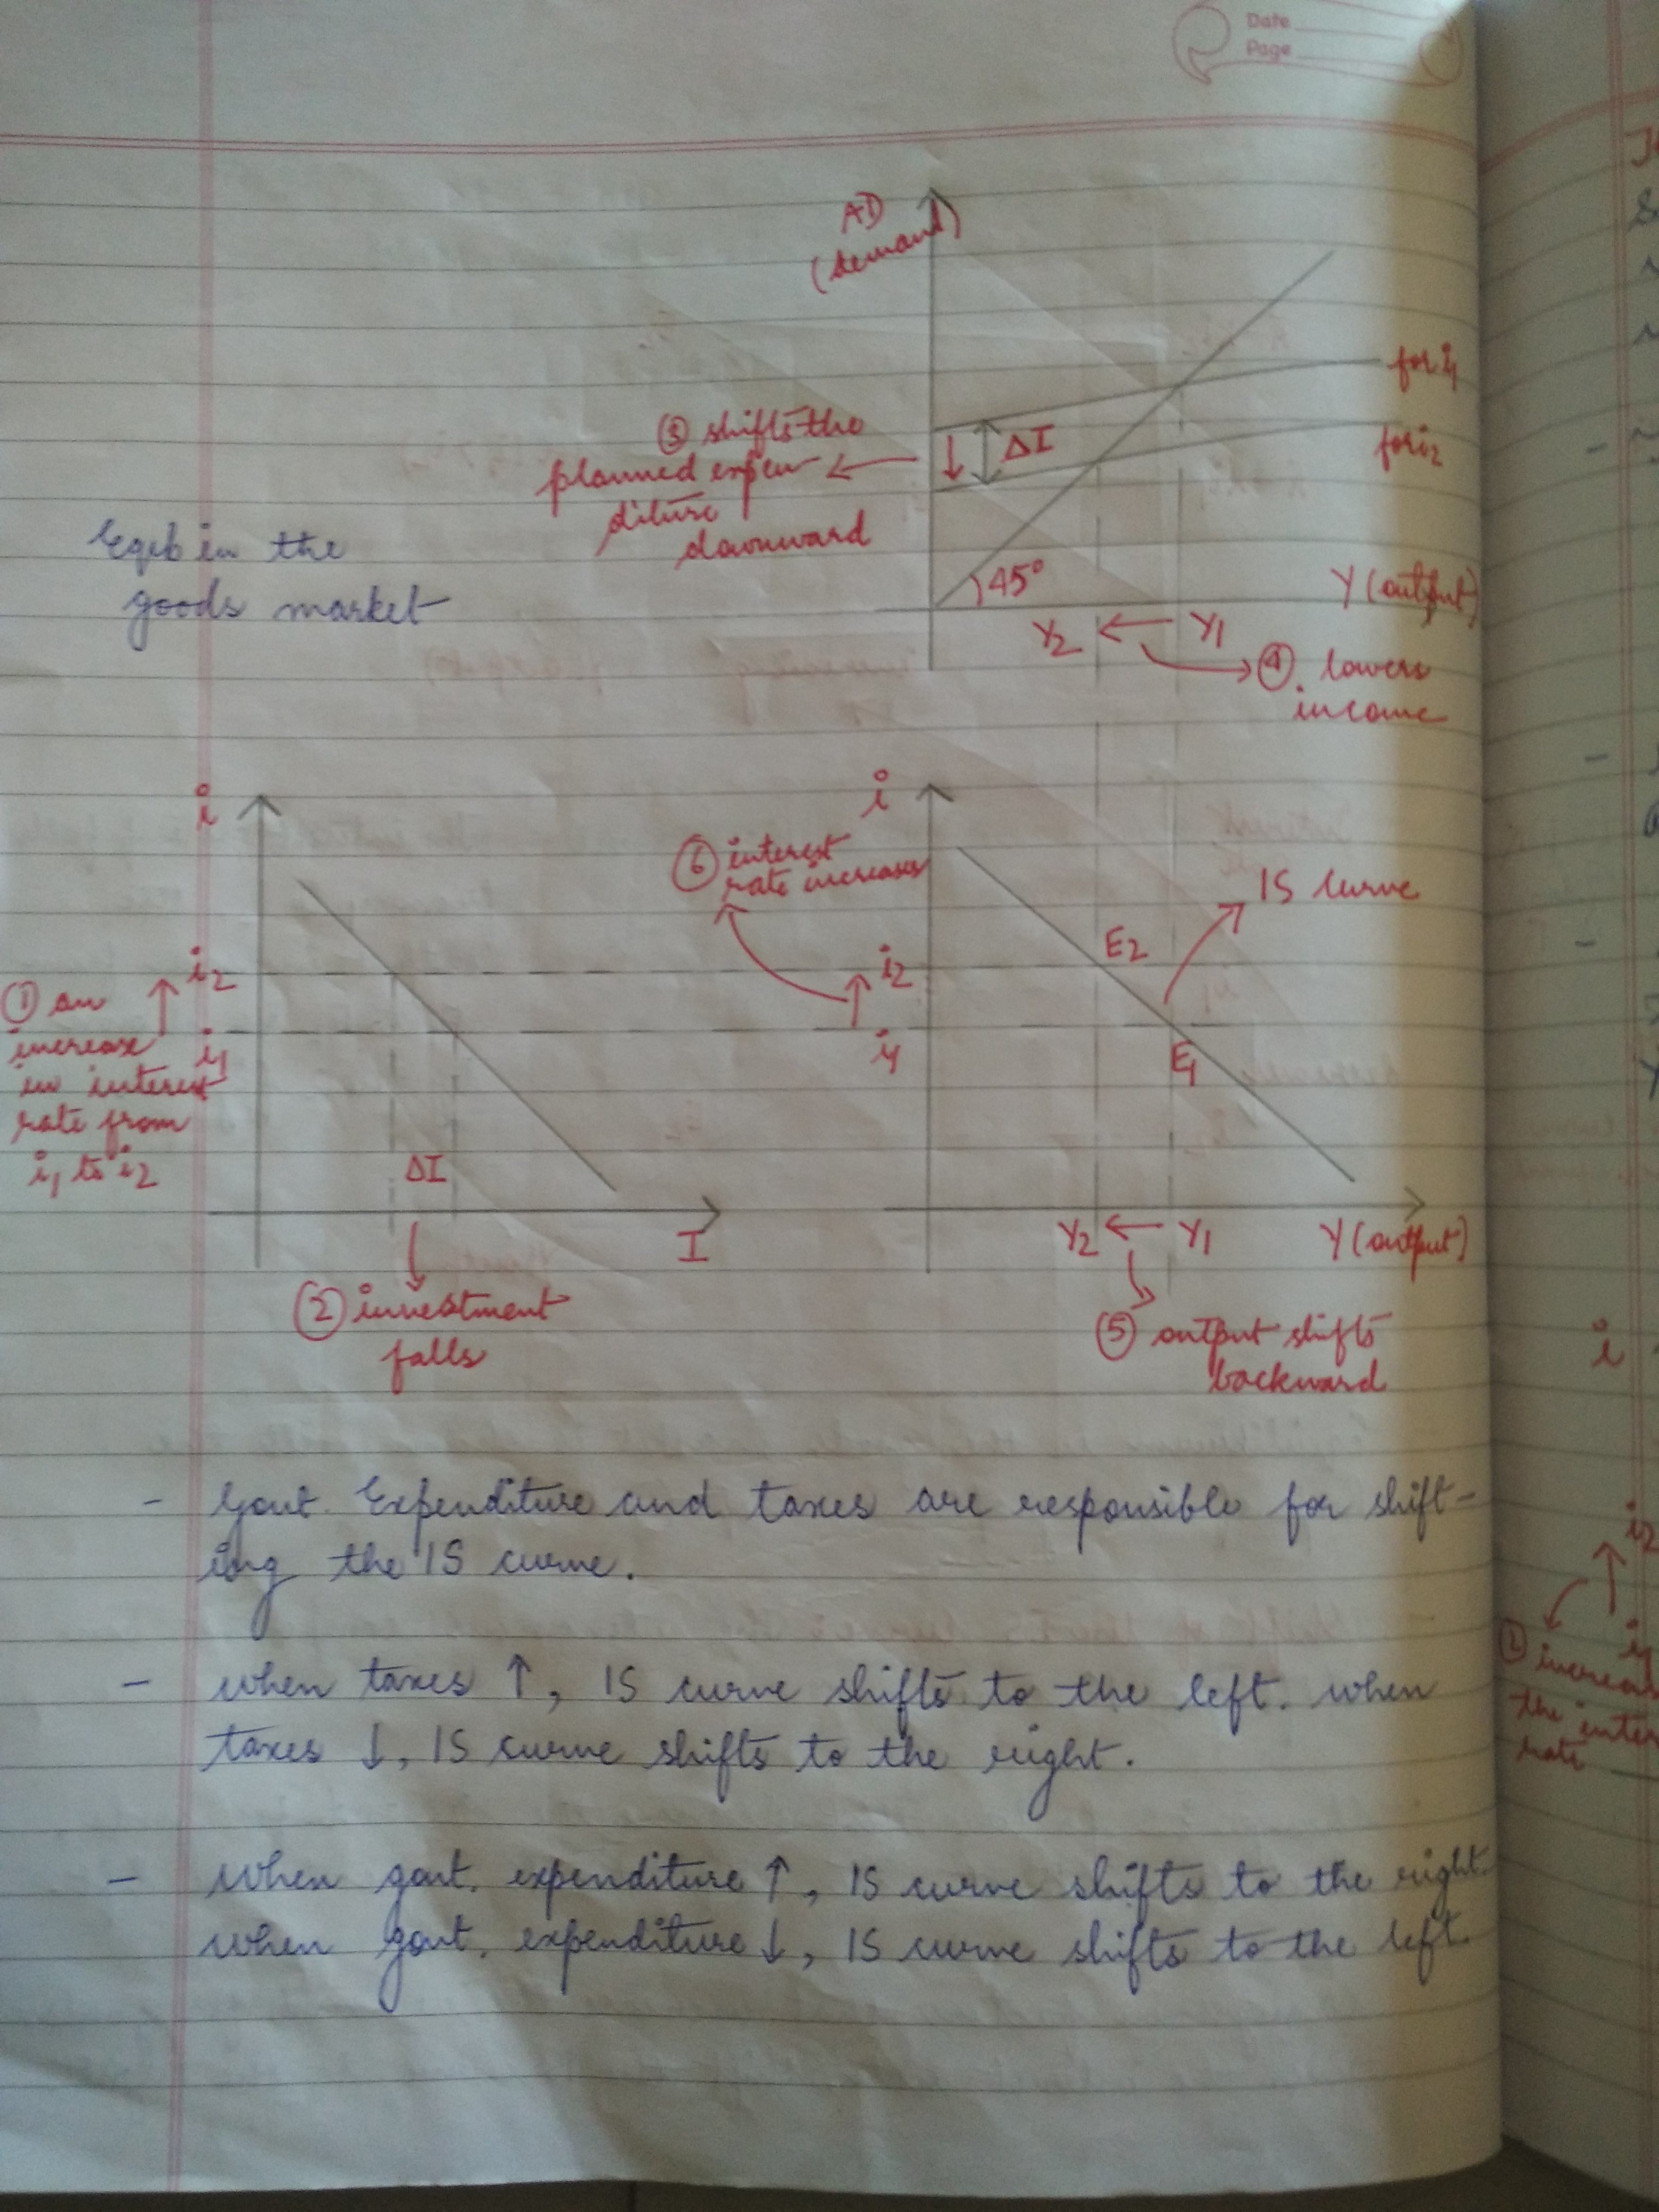 Date
Page
AD
(demand)
for i1
for i2
③ shifts the
planned expen
diture
downward
ΔI
Eqlb in the
goods market
45°
Y (output)
Y2 ← Y1
④ lowers
income
i
i
⑥ interest
rate increases
IS curve
E2
i2
i2
① an
increase
in interest
rate from
i1 to i2
i1
i1
E1
ΔI
I
Y2 ← Y1
Y (output)
② investment
falls
⑤ output shifts
backward
- Govt. Expenditure and taxes are responsible for shift-
ing the IS curve.
- when taxes ↑, IS curve shifts to the left. when
taxes ↓, IS curve shifts to the right.
- When govt. expenditure ↑, IS curve shifts to the right.
when govt. expenditure ↓, IS curve shifts to the left.
i
i2
i1
① increase
the inter
rate